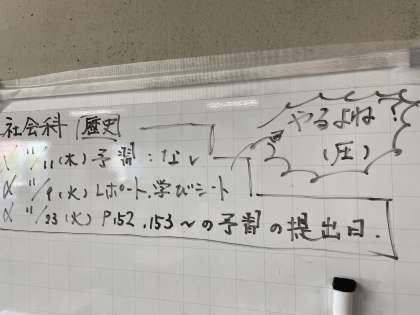 社会科 歴史
11/11(木) 予習:なし
11/9(火) レポート、学びシート
11/23(火) P.152、153〜の予習の提出日.
やるよね?
(圧)